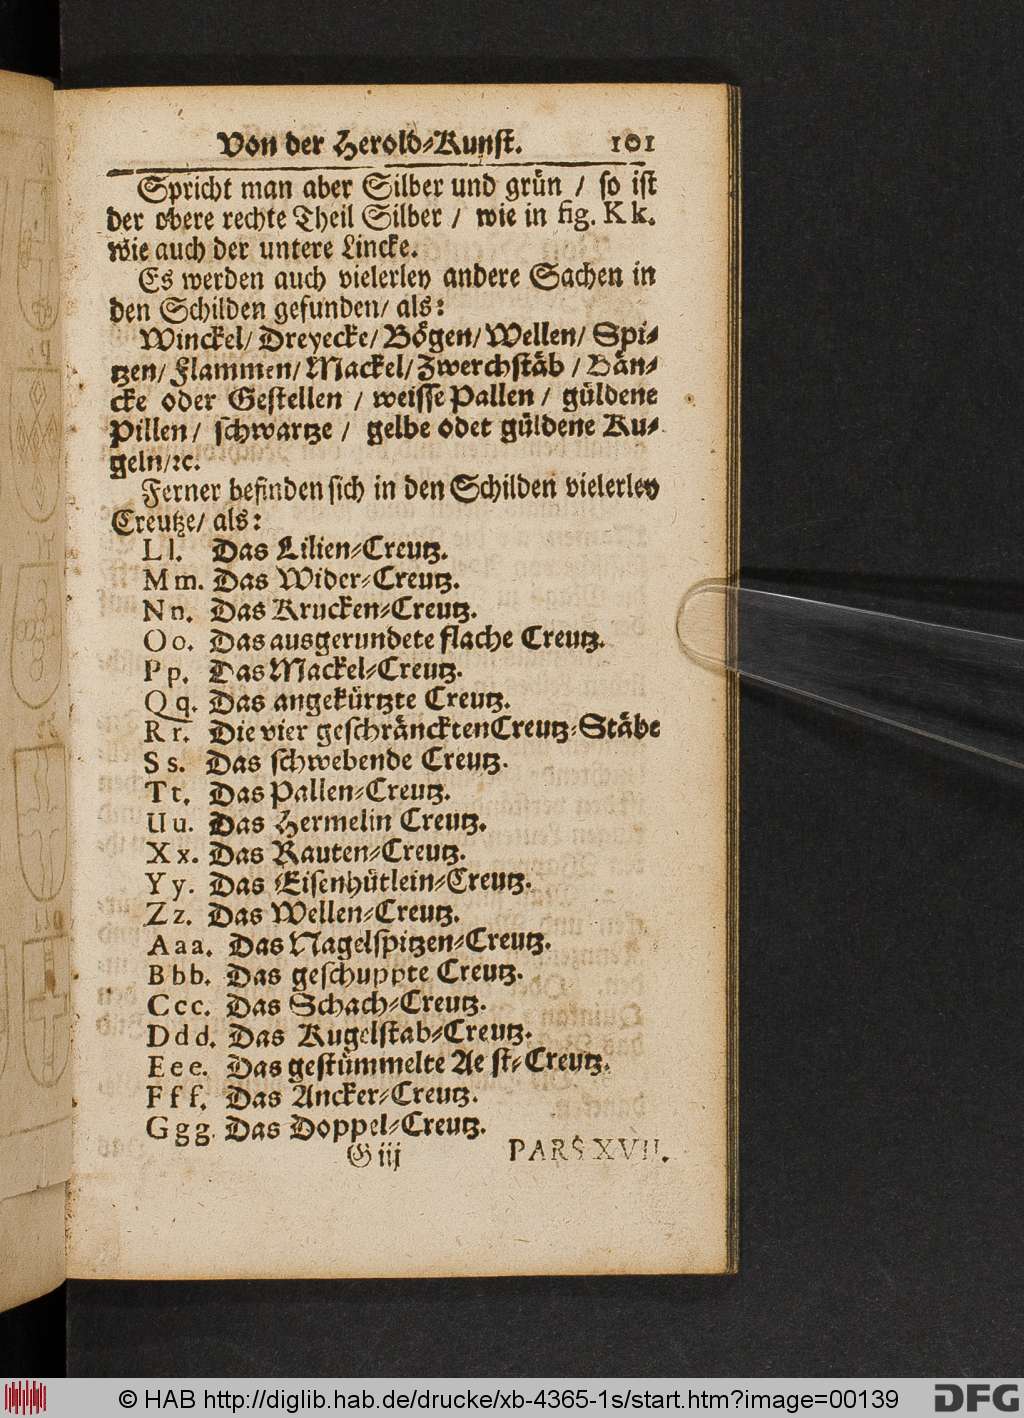 Von der Herold-Kunst. 101
Spricht man aber Silber und grün / so ist
der obere rechte Theil Silber / wie in fig. K k.
wie auch der untere Lincke.
Es werden auch vielerley andere Sachen in
den Schilden gefunden/ als:
Winckel/ Dreyecke/ Bögen/ Wellen/ Spi-
tzen/ Flammen/ Mackel/ Zwerchstäb / Bän-
cke oder Gestellen / weisse Pallen / güldene
Pillen/ schwartze / gelbe odet güldene Ku-
geln/ꝛc.
Ferner befinden sich in den Schilden vielerley
Creutze/ als:
L l. Das Lilien-Creutz.
M m. Das Wider-Creutz.
N n. Das Krucken-Creutz.
O o. Das ausgerundete flache Creutz.
P p. Das Mackel-Creutz.
Q q. Das angekürtzte Creutz.
R r. Die vier geschränckten Creutz-Stäbe
S s. Das schwebende Creutz.
T t. Das Pallen-Creutz.
U u. Das Hermelin Creutz.
X x. Das Rauten-Creutz.
Y y. Das Eisenhütlein-Creutz.
Z z. Das Wellen-Creutz.
A a a. Das Nagelspitzen-Creutz.
B b b. Das geschuppte Creutz.
C c c. Das Schach-Creutz.
D d d. Das Kugelstab-Creutz.
E e e. Das gestümmelte Ae st-Creutz.
F f f. Das Ancker-Creutz.
G g g. Das Doppel-Creutz.
G iij PARS XVII.
© HAB http://diglib.hab.de/drucke/xb-4365-1s/start.htm?image=00139 DFG